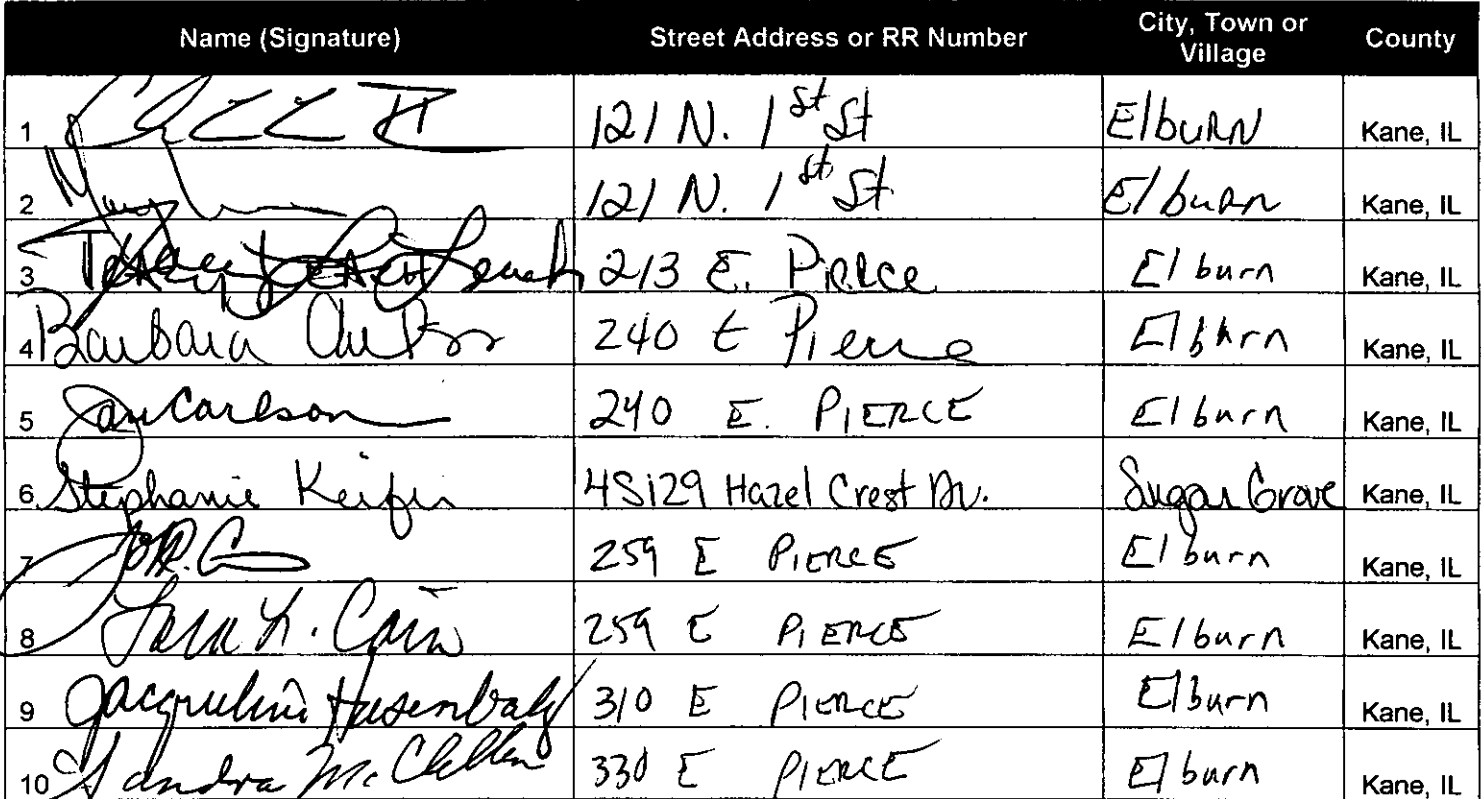 Name (Signature) Street Address or RR Number City, Town or Village County
1 121 N. 1st St Elburn Kane, IL
2 121 N. 1st St Elburn Kane, IL
3 213 E. Pierce Elburn Kane, IL
4 Barbara 240 E Pierce Elburn Kane, IL
5 Jan Carlson 240 E. PIERCE Elburn Kane, IL
6 Stephanie Keifer 4S129 Hazel Crest Dr. Sugar Grove Kane, IL
7 259 E PIERCE Elburn Kane, IL
8 L. Cain 259 E PIERCE Elburn Kane, IL
9 Jacqueline 310 E PIERCE Elburn Kane, IL
10 Sandra McClellan 330 E PIERCE Elburn Kane, IL